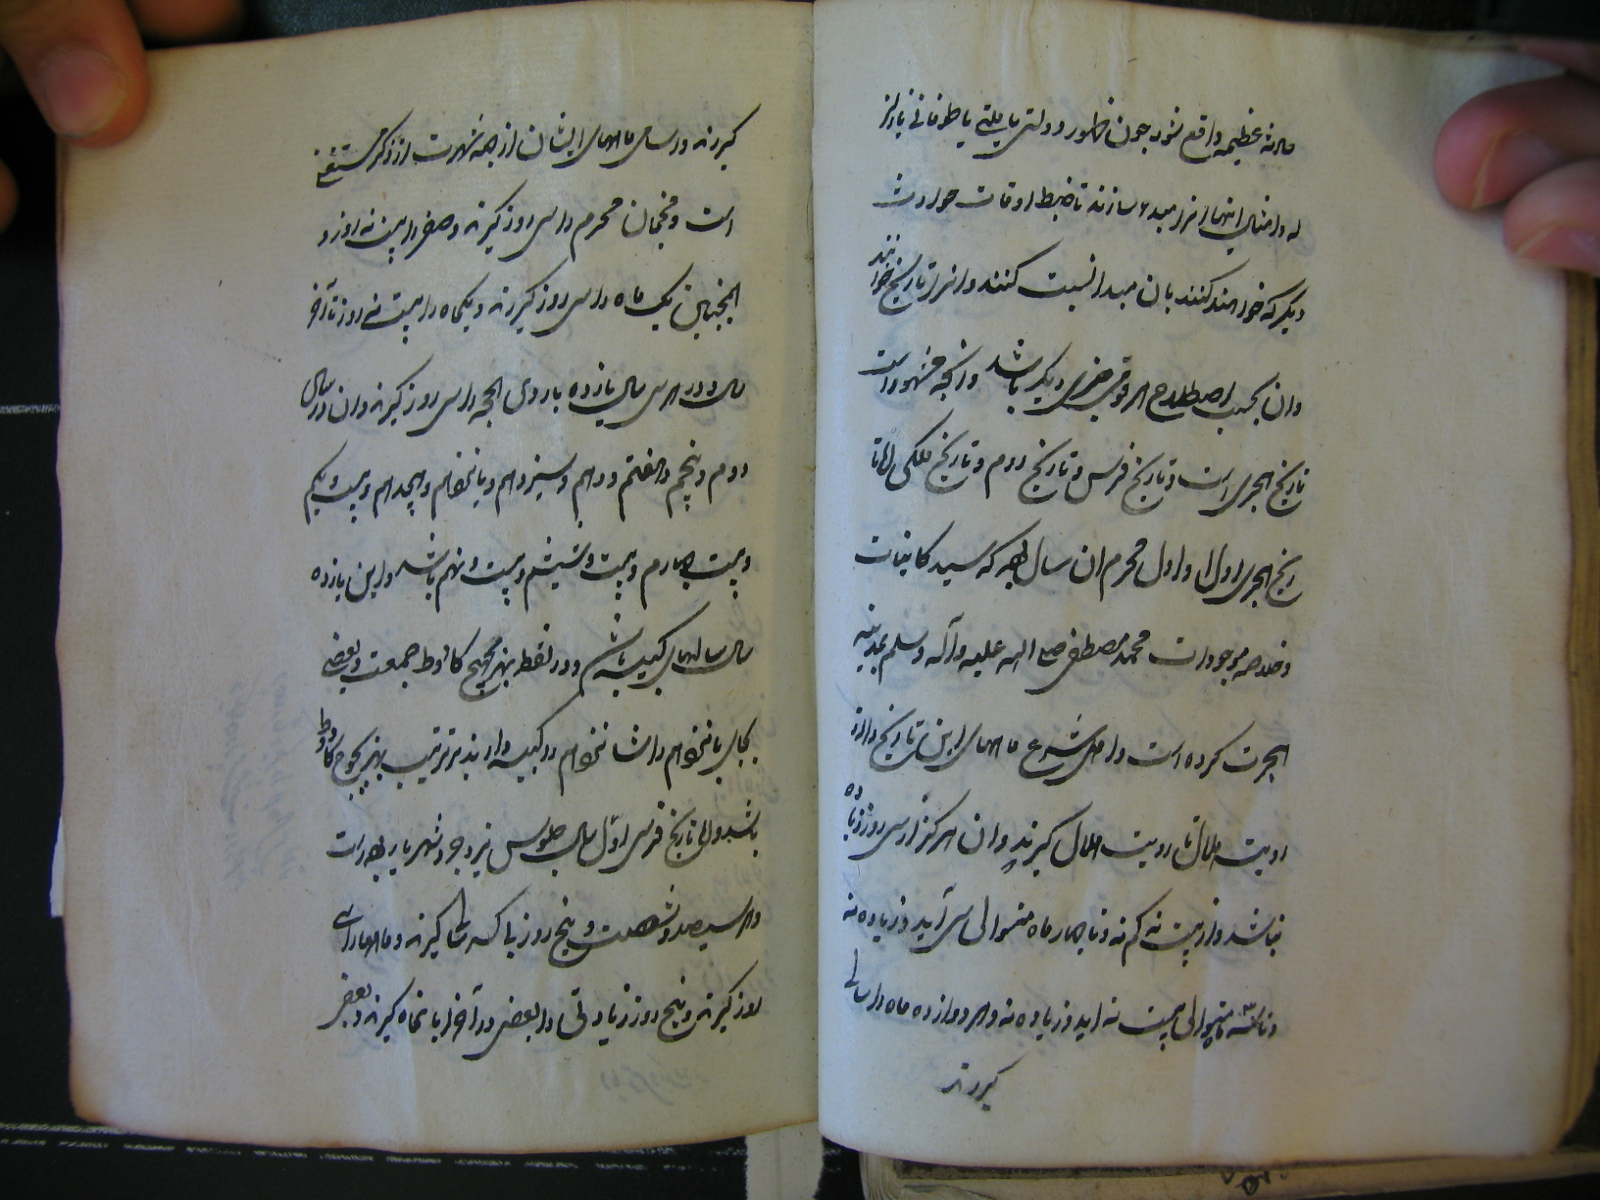 حادثه عظیمه واقع شود چون ظهور دولتی یا ملتی یا طوفانی یا زلز
له و امثال اینها انرا مبدء سازند تا ضبط اوقات حوادث
دیگر که خواهند کنند بان مبدا نسبت کنند و انرا تاریخ خوانند
و ان بحسب اصطلاح هر قومی چیزی دیگر باشد و انچه مشهور است
تاریخ هجری است و تاریخ فرس و تاریخ روم و تاریخ ملکی اما تا
ریخ هجری اول او اول محرم ان سال بوده که سید کاینات
و خلاصه موجودات محمد مصطفی صلی الله علیه و آله و سلم بمدینه
هجرت کرده است و اهل شرع ماههای این تاریخ را از
رویت هلال تا رویت هلال گیرند و ان هرگز از سی روز زیاده
نباشد و از بیست نه کم نه و تا چهار ماه متوالی سی آید و زیاده نه
و تا سه متوالی بیست نه اید و زیاده نه و هر دوازده ماه را سالی
گیرند
گیرند و اسامی ماههای ایشان از جهة شهرت از ذکر مستغنی
است و منجمان محرم را سی روز گیرند و صفر را بیست نه روز و
همچنین یک ماه را سی روز گیرند و یکماه را بیست نه روز تا آخر
سال و در هر سی سال یازده بار ذی الحجه را سی روز گیرند و ان در سال
دوم و پنجم و هفتم و دهم و سیزدهم و پانزدهم و هجدهم و بیست و یکم
و بیست چهارم و بیست و ششم و بیست و نهم باشد و این یازده
سال سالهای کبیسه باشند و در لفظ بهزیجهح کادوط جمعست و بعضی
بجای پانزدهم را شانزدهم را کبیسه دارند بر ترتیب بهزیجوح کادوط
باشد و اما تاریخ فرس اول سال جلوس یزدجرد شهریار بوده است
و هر سیصد و شصت و پنج روز بی کسر سالی گیرند و ماهها را سی
روز گیرند و پنج روز زیادتی را بعضی در آخر ابانماه گیرند و بعضی